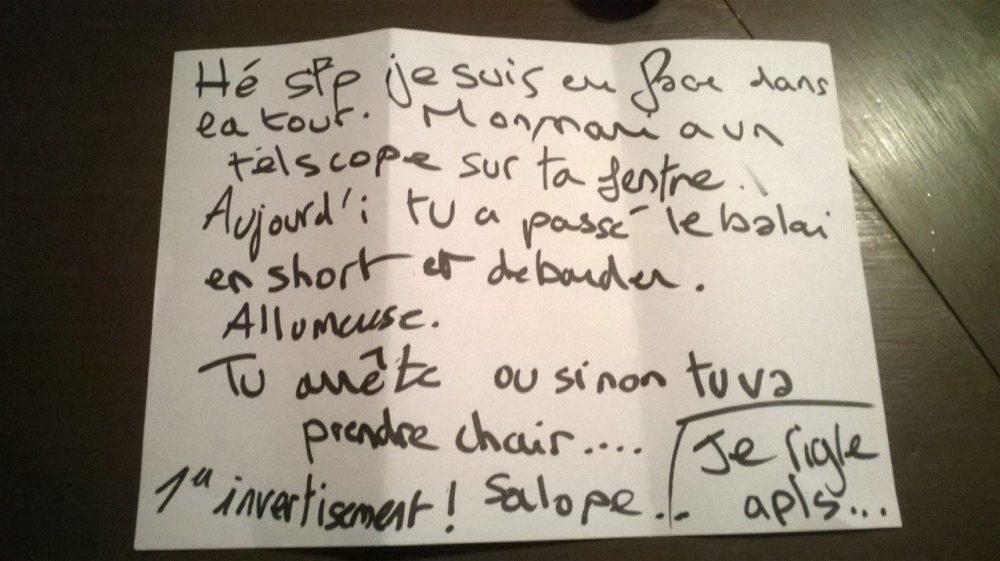 Hé stp je suis en face dans
la tour. Mon mari a un
télscope sur ta fentre.
Aujourd'i tu a passé le balai
en short et debarder.
Allumeuse.
Tu arrête ou sinon tu va
prendre chair....
1er invertisement ! Salope...
Je rigle
apls...